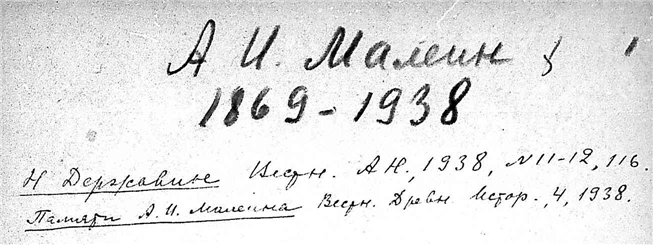 А И. Малеин
1869-1938
Н Державин Вестн. АН., 1938, N11-12, 116.
Памяти А. И. Малеина Вестн. Древн Истор., 4, 1938.